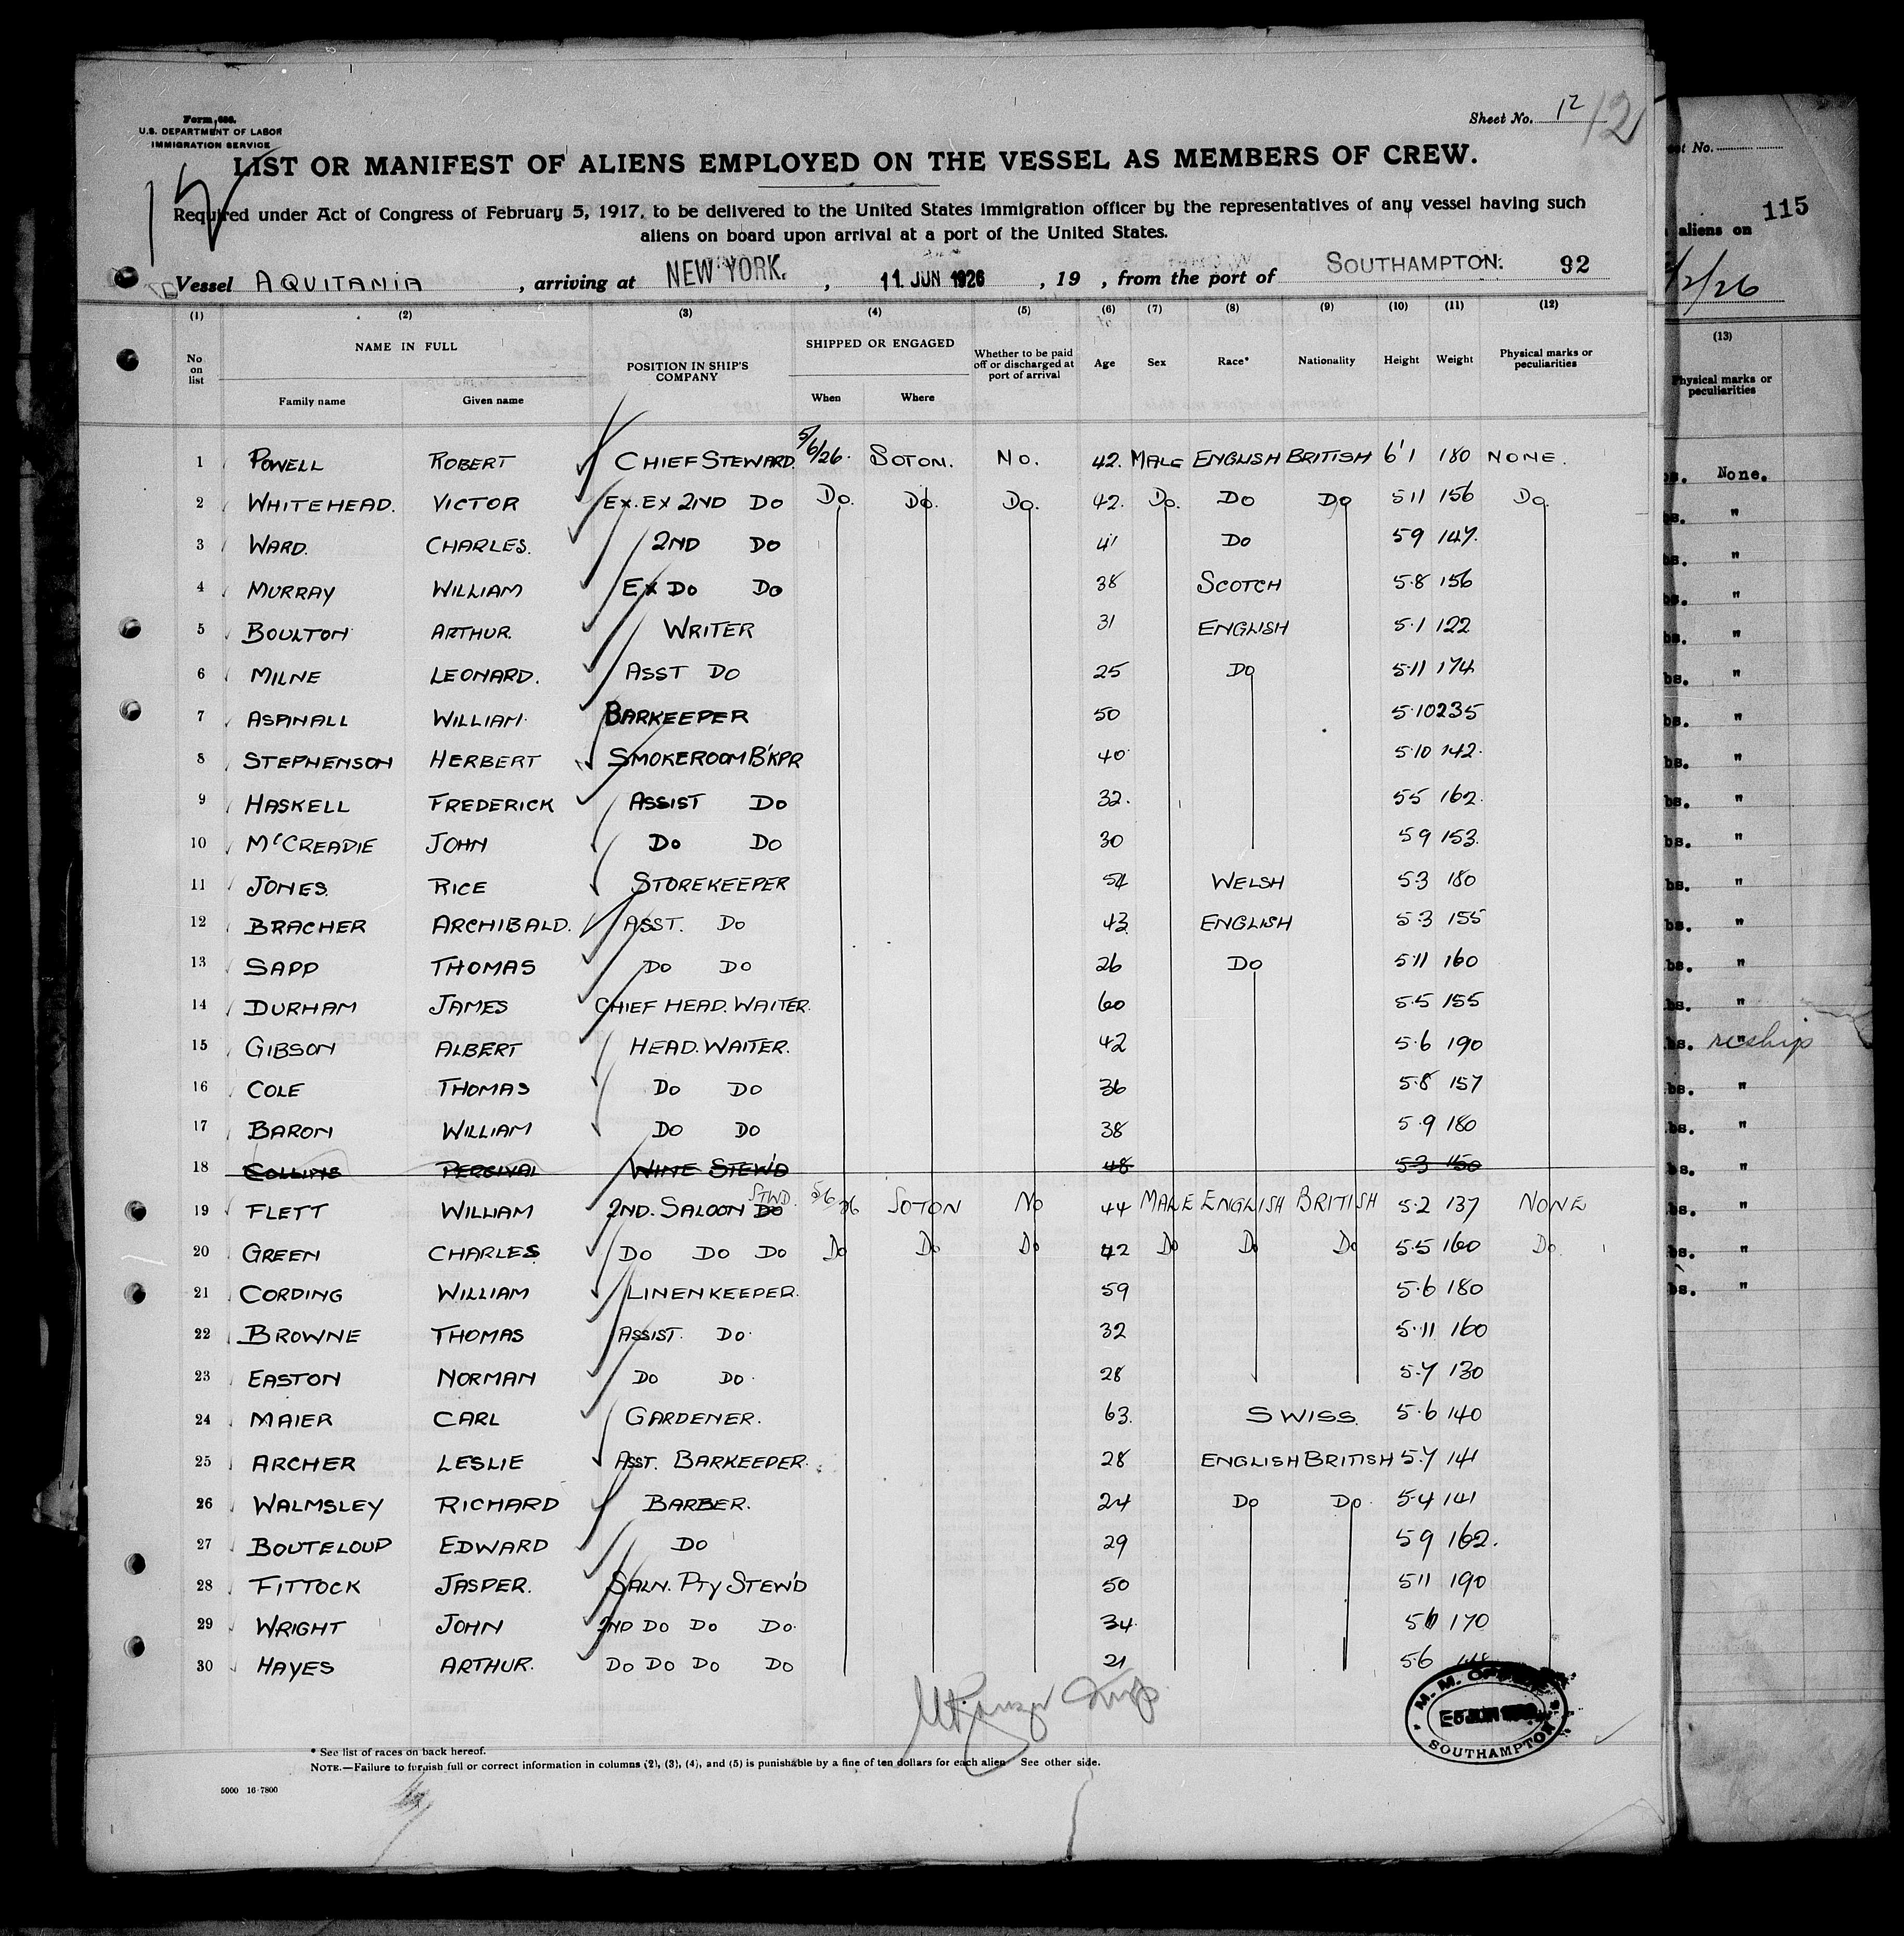 Form 686.
U.S. DEPARTMENT OF LABOR
IMMIGRATION SERVICE
Sheet No. 12 12
LIST OR MANIFEST OF ALIENS EMPLOYED ON THE VESSEL AS MEMBERS OF CREW.
Required under Act of Congress of February 5, 1917, to be delivered to the United States immigration officer by the representatives of any vessel having such
aliens on board upon arrival at a port of the United States.
Vessel AQUITANIA , arriving at NEW YORK. , 11 JUN 1926 , 19 , from the port of SOUTHAMPTON. 92
(1) (2) (3) (4) (5) (6) (7) (8) (9) (10) (11) (12)
No on list NAME IN FULL Family name Given name POSITION IN SHIP'S COMPANY SHIPPED OR ENGAGED When Where Whether to be paid off or discharged at port of arrival Age Sex Race* Nationality Height Weight Physical marks or peculiarities
1 POWELL ROBERT CHIEF STEWARD. 5/6/26. SOTON. NO. 42. MALE ENGLISH BRITISH 6'1 180 NONE.
2 WHITEHEAD. VICTOR EX. EX 2ND DO DO. DO. DO. 42. DO. DO DO 5 11 156 DO.
3 WARD. CHARLES. 2ND DO 41 DO 5 9 147.
4 MURRAY WILLIAM EX DO DO 38 SCOTCH 5.8 156
5 BOULTON ARTHUR. WRITER 31 ENGLISH 5.1 122
6 MILNE LEONARD. ASST DO 25 DO 5.11 174
7 ASPINALL WILLIAM. BARKEEPER 50 5.10 235
8 STEPHENSON HERBERT SMOKEROOM B'KPR 40 5.10 142.
9 HASKELL FREDERICK ASSIST DO 32. 5 5 162.
10 McCREADIE JOHN DO DO 30 5 9 153.
11 JONES. RICE STOREKEEPER 54 WELSH 5.3 180
12 BRACHER ARCHIBALD. ASST. DO 43 ENGLISH 5.3 155
13 SAPP THOMAS DO DO 26 DO 5.11 160
14 DURHAM JAMES CHIEF HEAD. WAITER. 60 5.5 155
15 GIBSON ALBERT HEAD. WAITER. 42 5.6 190
16 COLE THOMAS DO DO 36 5.8 157
17 BARON WILLIAM DO DO 38 5.9 180
18 COLLINS PERCIVAL WINE STEW'D 48 5 3 150
19 FLETT WILLIAM 2ND. SALOON DO STWD 5/6/26 SOTON NO 44 MALE ENGLISH BRITISH 5.2 137 NONE
20 GREEN CHARLES. DO DO DO DO DO DO 42 DO DO DO 5.5 160 DO.
21 CORDING WILLIAM LINENKEEPER. 59 5.6 180
22 BROWNE THOMAS ASSIST. DO. 32 5.11 160
23 EASTON NORMAN DO DO. 28 5.7 130
24 MAIER CARL GARDENER. 63. SWISS. 5.6 140
25 ARCHER LESLIE ASST. BARKEEPER. 28 ENGLISH BRITISH 5.7 141
26 WALMSLEY RICHARD BARBER. 24 DO DO. 5.4 141
27 BOUTELOUP EDWARD DO 29 5 9 162.
28 FITTOCK JASPER. SALN. PTY STEW'D 50 5 11 190
29 WRIGHT JOHN 2ND DO DO DO. 34. 170
30 HAYES ARTHUR. DO DO DO DO 21 5.6
M. M. OFFICE
SOUTHAMPTON
* See list of races on back hereof.
NOTE.—Failure to furnish full or correct information in columns (2), (3), (4), and (5) is punishable by a fine of ten dollars for each alien. See other side.
5000 16-7800
No.
115
aliens on
2/26
(13)
Physical marks or
peculiarities
bs. None.
bs. "
bs. "
bs. "
bs. "
bs. "
bs. "
bs. "
bs. "
bs. "
bs. "
bs. "
bs. "
bs. "
bs. " reship
bs. "
bs. "
bs. "
bs. "
bs. "
bs. "